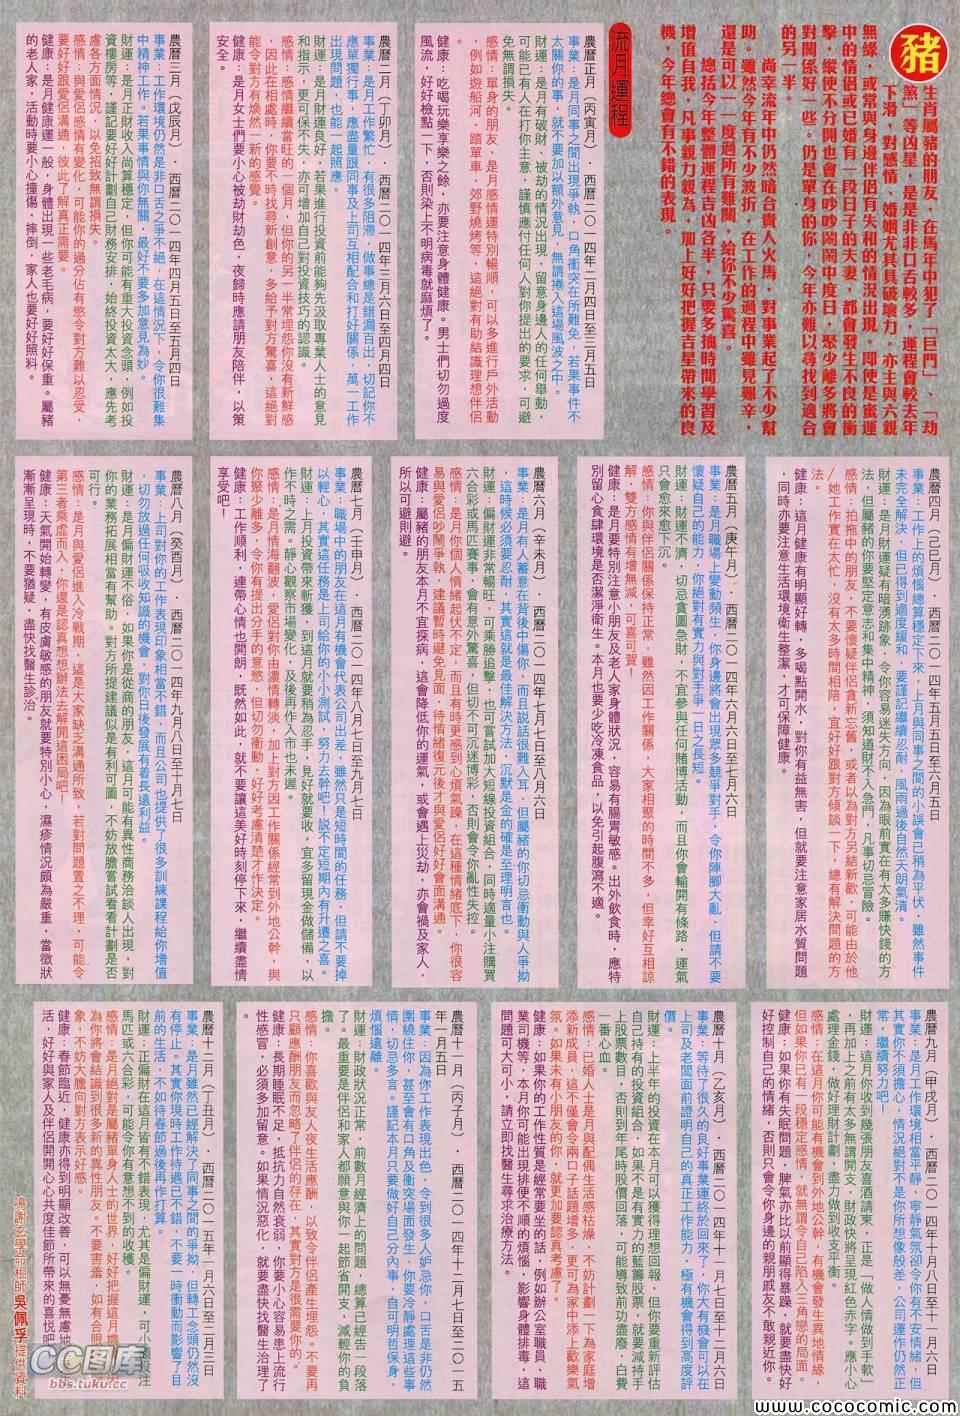 豬
生肖屬豬的朋友，在馬年中犯了「巨門」、「劫
煞」等凶星，是是非非口舌較多，運程會較去年
下滑，對感情、婚姻尤其具破壞力，亦主與六親
無緣，或常與身邊伴侶有失和的情況出現。即使是蜜運
中的情侶或已婚有一段日子的夫妻，都會發生不良的衝
擊，縱使不分開也會在吵吵鬧鬧中度日，聚少離多將會
對關係好一些。仍是單身的你，今年亦難以尋找到適合
的另一半。
尚幸流年中仍然暗合貴人火馬，對事業起了不少幫
助。雖然今年有不少波折，在工作的過程中雖見艱辛，
還是可以一一度過所有難關，給你不少驚喜。
總括今年整體運程吉凶各半，只要多抽時間學習及
增值自我，凡事親力親為，加上好好把握吉星帶來的良
機，今年總會有不錯的表現。
流月運程
農曆正月（丙寅月）．西曆二〇一四年二月四日至三月五日
事業：是月同事之間出現爭執，口角衝突在所難免，若果事件不
太關你的事，就不要加以額外意見，無謂捲入這場風波之中。
財運：是月有破財、被劫的情況出現，留意身邊人的任何舉動，
可能有人在打你主意，謹慎應付任何人對你提出的要求，可避
免無謂損失。
感情：單身的朋友，是月感情運特別暢順，可以多進行戶外活動
，例如遊船河、踏單車、郊野燒烤等，這絕對有助結識理想伴侶
健康：吃喝玩樂享樂之餘，亦要注意身體健康。男士們切勿過度
風流，好好檢點一下，否則染上不明病毒就麻煩了。
農曆二月（丁卯月）．西曆二〇一四年三月六日至四月四日
事業：是月工作繁忙，有很多阻滯，做事總是錯漏百出，切記你不
應單獨行事，應盡量跟同事及上司互相配合和打好關係，萬一工作
出現問題，也能一起照應。
財運：是月財運良好，若果進行投資前能夠先汲取專業人士的意見
和指示，更可保不失，亦可增加自己對投資技巧的認識。
感情：感情繼續當旺的一個月，但你的另一半常埋怨你沒有新鮮感
，因此在相處時，你要不時找尋新創意，多給予對方驚喜，這絕對
能令對方有煥然一新的感覺。
健康：是月女士們要小心被劫財劫色，夜歸時應請朋友陪伴，以策
安全。
農曆三月（戊辰月）．西曆二〇一四年四月五日至五月四日
事業：工作環境仍然是非口舌之爭不絕，在這情況下，令你很難集
中精神工作。若果事情與你無關，最好不要多加意見為妙。
財運：是月正財收入尚算穩定，但你可能有重大投資念頭，例如投
資樓房等，謹記要好好計劃自己財務安排，始終投資太大，應先考
慮各方面情況，以免招致無謂損失。
感情：與愛侶感情有變化，可能你的過分佔有慾令對方難以忍受，
要好好跟愛侶溝通，彼此了解真正需要。
健康：是月健康運一般，身體出現一些老毛病，要好好保重。屬豬
的老人家，活動時要小心撞傷、摔倒，家人也要好好照料。
農曆四月（己巳月）．西曆二〇一四年五月五日至六月五日
事業：工作上的煩惱總算穩定下來，上月與同事之間的小誤會已稍為平伏，雖然事件
未完全解決，但已得到適度緩和，要謹記繼續忍耐，風雨過後自然天朗氣清。
財運：是月財運疑有暗湧跡象，令你容易迷失方向，因為眼前實在有太多賺快錢的方
法，但屬豬的你要堅定意志和集中精神，須知道財不入急門，凡事切忌冒險。
感情：拍拖中的朋友，不要懷疑伴侶貪新忘舊，或者以為對方另結新歡，可能由於他
/她工作實在太忙，沒有太多時間相陪，宜好好跟對方傾談一下，總有解決問題的方
法。
健康：這月健康有明顯好轉，多喝點開水，對你有益無害，但就要注意家居水質問題
，同時亦要注意生活環境衛生整潔，才可保障健康。
農曆五月（庚午月）．西曆二〇一四年六月六日至七月六日
事業：是月職場上變動頻生，你身邊將會出現眾多競爭對手，令你陣腳大亂，但請不要
懷疑自己的能力，你絕對有實力與對手爭一日之長短。
財運：財運不濟，切忌貪圖急財，不宜參與任何賭博活動，而且你會輸開有條路，運氣
只會愈來愈下沉。
感情：你與伴侶關係保持正常，雖然因工作關係，大家相聚的時間不多，但幸好互相諒
解，雙方感情有增無減，可喜可賀！
健康：是月要特別注意小朋友及老人家身體狀況，容易有腸胃敏感。出外飲食時，應特
別留心食肆環境是否潔淨衛生。本月也要少吃冷凍食品，以免引起腹瀉不適。
農曆六月（辛未月）．西曆二〇一四年七月七日至八月六日
事業：是月有人蓄意在背後中傷你，而且說話很難入耳，但屬豬的你切忌衝動與人爭拗
，這時候必須要忍耐，其實這就是最佳解決方法，沉默是金的確是至理明言也。
財運：偏財運非常暢旺，可乘勝追擊，也可嘗試加大短線投資組合，同時適量小注購買
六合彩或馬匹賽事，會有意外驚喜，但切不可沉迷博彩，否則會令你亂性失控。
感情：是月你個人情緒起伏不定，而且有時更感到心煩氣躁，在這種情緒底下，你很容
易與愛侶吵鬧爭執，建議暫時避免見面，待情緒復元後才與愛侶好好會面溝通。
健康：屬豬的朋友本月不宜探病問喪，這會降低你的運氣，或會遇上災劫，亦會禍及家人，
所以可避則避。
農曆七月（壬申月）．西曆二〇一四年八月七日至九月七日
事業：職場中的朋友在這月有機會代表公司出差，雖然只是短時間的任務，但請不要掉
以輕心，其實這任務是上司給你的小小測試，努力去幹吧！說不定短期內有升遷之喜。
財運：上月投資帶來斬獲，到這月就要稍為忍手，見好就要收，宜多留現金做儲備，以
作不時之需。靜心觀察市場變化，及後再作入市也未遲。
感情：是月情海翻波，愛侶對你由濃情轉淡，加上對方因工作關係經常到外地公幹，與
你聚少離多，令你有提出分手的意慾，但切勿衝動，好好考慮清楚才作決定。
健康：工作順利，連帶心情也開朗，既然如此，就不要讓這美好時刻停下來，繼續盡情
享受吧！
農曆八月（癸酉月）．西曆二〇一四年九月八日至十月七日
事業：上司對你的工作表現印象相當不錯，而且公司也提供了很多訓練課程給你增值
，切勿放過任何吸收知識的機會，對你日後發展有着長遠利益。
財運：是月偏財運不俗，如果你是從商的朋友，這月可能有異性商務洽談人出現，對
你的業務拓展相當有幫助。對方所提建議似是有利可圖，不妨放膽嘗試看看計劃是否
可行。
感情：是月與愛侶進入冷戰期，這是大家缺乏溝通所致，若對問題置之不理，可能令
第三者乘虛而入，你還是認真想想辦法去解開這困局吧！
健康：天氣開始轉變，有皮膚敏感的朋友就要特別小心，濕疹情況頗為嚴重，當徵狀
漸漸呈現時，不要猶疑，盡快找醫生診治。
農曆九月（甲戌月）．西曆二〇一四年十月八日至十一月六日
事業：是月工作環境相當平靜，寧靜氣氛卻令你有不安情緒，但
其實你不須擔心，情況絕對不是你所想像般差，公司運作仍然正
常，繼續努力吧！
財運：這月你收到幾張朋友喜酒請柬，正是「做人情做到手軟」
，再加上之前有太多無謂開支，財政快將呈現紅色赤字。應小心
處理金錢，做好理財計劃，盡力做到收支平衡。
感情：在這月你可能有機會到外地公幹，有機會發生異地情緣，
但如果你已有一段穩定感情，就無謂令自己陷入三角戀的局面。
健康：如果你有失眠問題，脾氣亦比以前顯得暴躁，就要盡快好
好控制自己的情緒，否則只會令你身邊的親朋戚友不敢親近你。
農曆十月（乙亥月）．西曆二〇一四年十一月七日至十二月六日
事業：等待了很久的良好事業運終於回來了，你大有機會可以在
上司及老闆面前證明自己的真正工作能力，極有機會得到高度評
價。
財運：上半年的投資在本月可以獲得理想回報，但你要重新評估
自己持有的投資組合，如果不是有實力的藍籌股票，就要減持手
上股票數目，否則到年尾時股價回落，可能導致前功盡廢，白費
一番心血。
感情：已婚人士是月與配偶生活感情枯燥，不妨計劃一下為家庭增
添新成員，這不僅會令兩口子話題增多，更可為家中添上歡樂氣
氛。如果未有小朋友的你，就更加要認真考慮了。
健康：如果你的工作性質是經常要坐的話，例如辦公室職員、職
業司機等，本月你可能出現排便不順的情緒，影響身體排毒，這
問題可大可小，請立即找醫生尋求治療方法。
農曆十一月（丙子月）．西曆二〇一四年十二月七日至二〇一五
年一月五日
事業：因為你工作表現出色，令到很多人妒忌你，口舌是非仍然
圍繞住你，甚至會有口角及衝突場面發生，你要冷靜處理這些事
情，切忌多言。謹記本月只要做好自己分內事，自可明哲保身，
煩惱遠離。
財運：財政狀況正常，前數月經濟上的問題，總算已經告一段落
了。最重要是伴侶和家人都願意與你一起節省開支，減輕你的負
擔。
感情：你喜歡與友人夜生活應酬，以致令伴侶產生埋怨。不要再
只顧應酬朋友而忽略了伴侶的存在，其實對方是很需要你的。
健康：長期睡眠不足，抵抗力自然衰弱，你要小心容易患上流行
性感冒，必須多加留意。如果情況惡化，就要盡快找醫生治理了
農曆十二月（丁丑月）．西曆二〇一五年一月六日至二月三日
事業：是月雖然已經解決了同事之間的紛爭，但轉工念頭仍然沒
有停止。其實你現時工作待遇已不錯，不要一時衝動而影響了目
前的生活，不如待春節過後再作打算。
財運：正偏財在這月皆有不錯表現，尤其是偏財運，可小
馬匹或六合彩，可能令你有意想不到的收穫。
感情：是月絕對是屬豬單身人士的世界，好好把握這月
為你將會結識到很多新的異性朋友。不要害羞，如有合眼
象，不妨大膽向對方表示好感。
健康：春節臨近，健康亦得到明顯改善，可以無憂無慮地
活，好好與家人及伴侶開開心心共度佳節所帶來的喜悅吧
鳴謝玄學命相師吳佩孚提供資料
CC图库
bbs.tuku.cc
www.cococomic.com